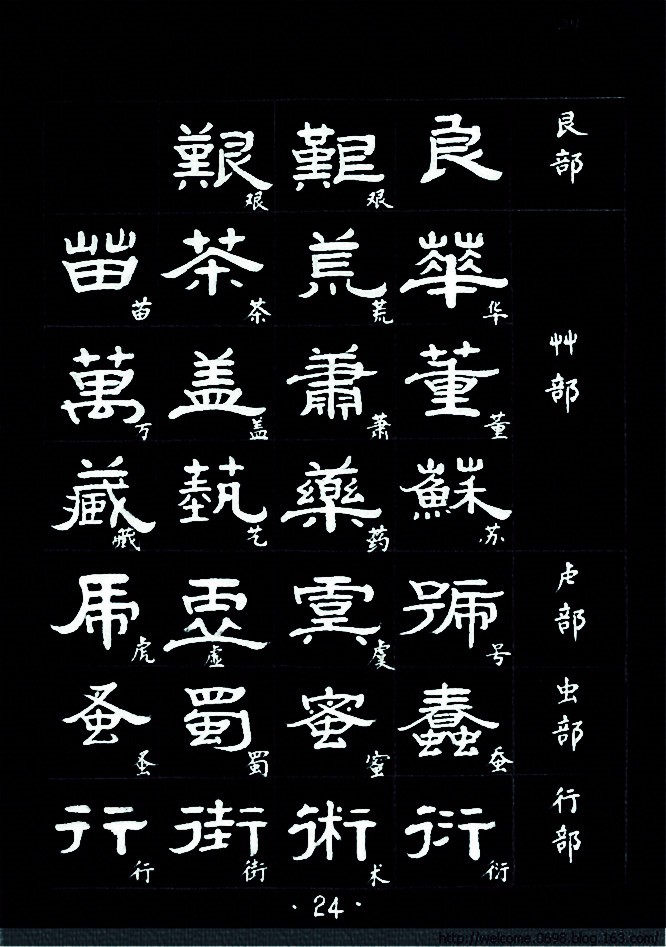 艮部
良
艱 艰
艱 艰
艸部
華 华
荒 荒
茶 茶
苗 苗
董 董
蕭 萧
盖 盖
萬 万
蘇 苏
藥 药
埶 艺
藏 藏
虍部
號 号
虞 虞
虚 虚
虎 虎
虫部
蠢 蚕
蜜 蜜
蜀 蜀
蚤 蚤
行部
衍 衍
術 术
街 街
行 行
·24·
http://welcome.0598.blog.163.com/